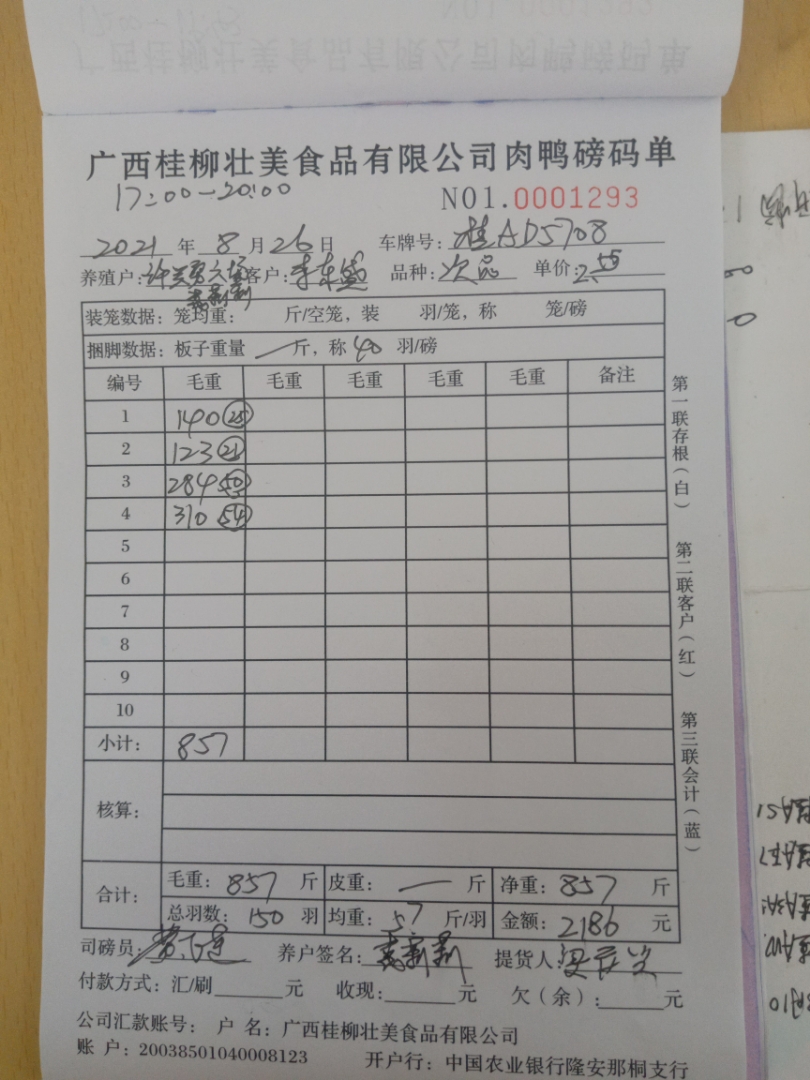 广西桂柳壮美食品有限公司肉鸭磅码单
17:00-20:00 NO1.0001293
2021年8月26日 车牌号:桂AD5708
养殖户: 客户:李东盛 品种:次品 单价:2.55
装笼数据:笼均重: 斤/空笼,装 羽/笼,称 笼/磅
捆脚数据:板子重量 — 斤,称40羽/磅
编号 毛重 毛重 毛重 毛重 毛重 备注
1 140 25
2 123 21
3 284 50
4 310 54
5
6
7
8
9
10
小计: 857
核算:
合计: 毛重:857斤 皮重:— 斤 净重:857斤
总羽数:150羽 均重:5.7斤/羽 金额:2186元
司磅员: 养户签名: 提货人:
付款方式:汇/刷 元 收现: 元 欠(余): 元
公司汇款账号: 户 名:广西桂柳壮美食品有限公司
账 户:20038501040008123 开户行:中国农业银行隆安那桐支行
第一联存根(白)
第二联客户(红)
第三联会计(蓝)